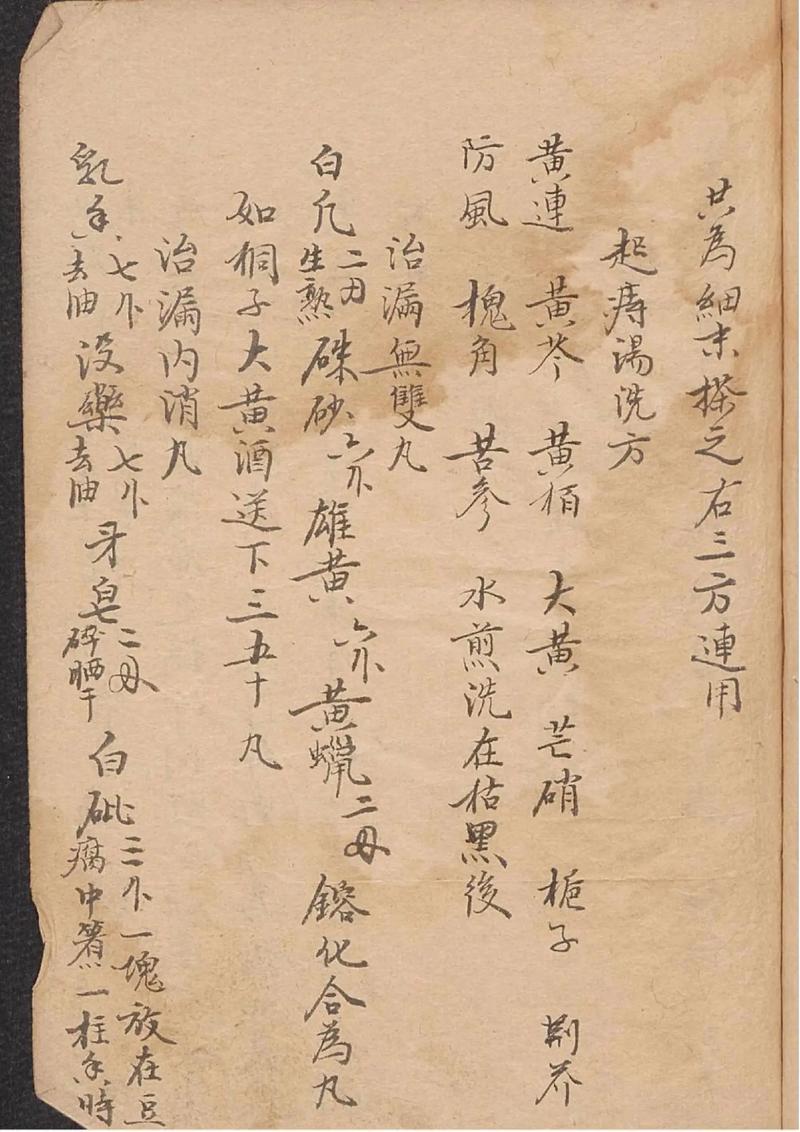 共為細末搽之右三方連用
起痔湯洗方
黃連 黃芩 黃栢 大黃 芒硝 梔子 荆芥
防風 槐角 苦參 水煎洗在枯黑後
治漏無雙丸
白凡二刄生熟 硃砂六分 雄黃六分 黃蠟二母 鎔化合為丸
如桐子大黃酒送下三五十丸
治漏內消丸
乳香七分去油 沒藥七分去油 牙皂二母碎晒干 白砒三分一塊放在豆腐中煮一柱香時